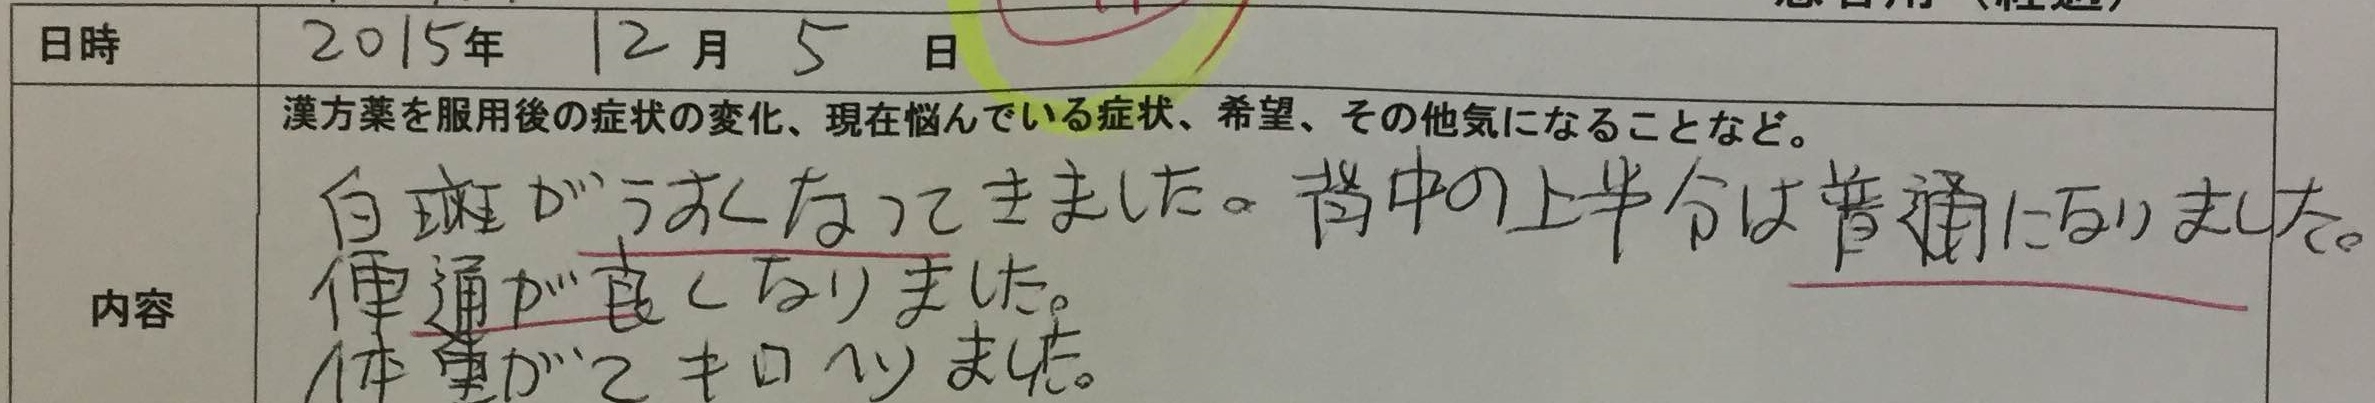 日時 2015年 12月 5日
漢方薬を服用後の症状の変化、現在悩んでいる症状、希望、その他気になることなど。
白斑がうすくなってきました。背中の上半分は普通になりました。
便通が良くなりました。
内容
体重が2キロへりました。